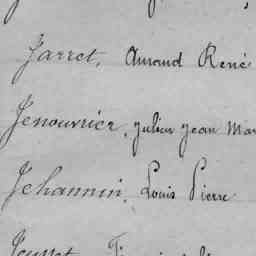 Jarret, Amand René
Jenouvrier, Julien Jean Mar
Jehannin, Louis Pierre